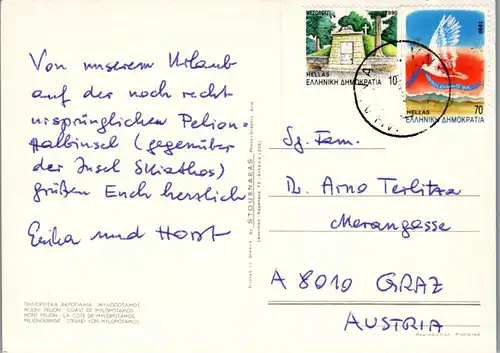 Von unserem Urlaub
auf der noch recht
ursprünglichen Pelion-
Halbinsel (gegenüber
der Insel Skiathos)
grüßen Euch herzlich
Erika und Horst
ΠΗΛΙΟΡΕΙΤΙΚΑ ΑΚΡΟΓΙΑΛΙΑ · ΜΥΛΟΠΟΤΑΜΟΣ
MOUNT PELION - COAST OF MYLOPOTAMOS
MONT PELION - LA COTE DE MYLOPOTAMOS
PELIONGEBIRGE - STRAND VON MYLOPOTAMOS
Printed in Greece by STOURNARAS Photo-Graphic Arts
1990
HELLAS 10
ΕΛΛΗΝΙΚΗ ΔΗΜΟΚΡΑΤΙΑ
1990
HELLAS 70
ΕΛΛΗΝΙΚΗ ΔΗΜΟΚΡΑΤΙΑ
Sg. Fam.
Dr. Arno Terlitza
Merangasse
A 8010 GRAZ
AUSTRIA
Reproduction Prohibited